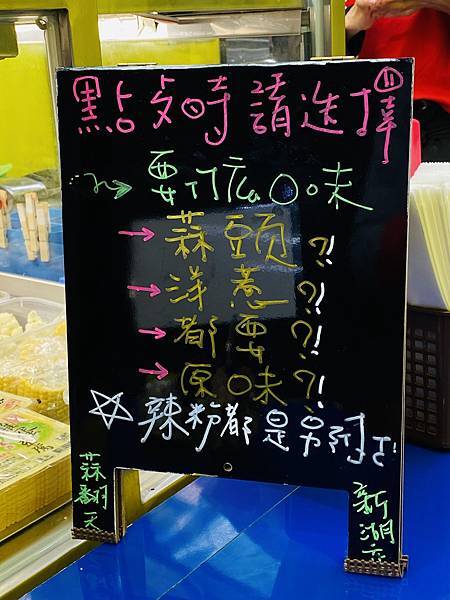 點攵時請選擇
要什広口味
→ 蒜頭?!
→ 洋蔥?!
→ 都要?!
→ 原味?!
☆辣粉都是另附
蒜翻天
新湖